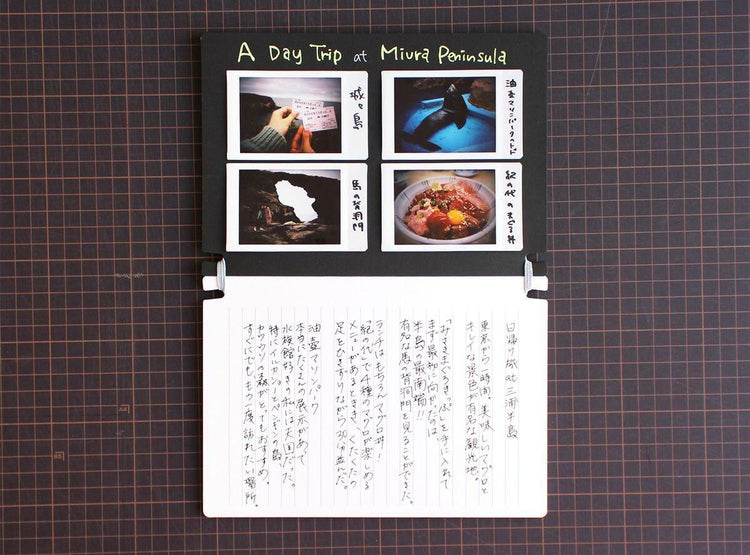 A Day Trip at Miura Peninsula
城ヶ島
油壺マリンパークのトド
馬の背洞門
紀の代のまぐろ丼
日帰り城ヶ三浦半島
東京から一時間。美味しいマグロと
キレイな景色が有名な観光地。
「みさきまぐろきっぷ」を手に入れて
まず最初に向かったのは
半島の最南端!!
有名な馬の背洞門を見ることができた。
ランチはもちろんマグロ丼!
「紀の代」で4種のマグロが楽しめる
メニューがあるときき、くたくたの
足をひきずりながら30分並んだ。
油壺マリンパーク
本当にたくさんの展示があって
水族館好きの私には天国だった。
特にイルカショーとペンギンの島、
カワウソの森がとてもおすすめ。
すぐにでももう一度訪れたい場所。